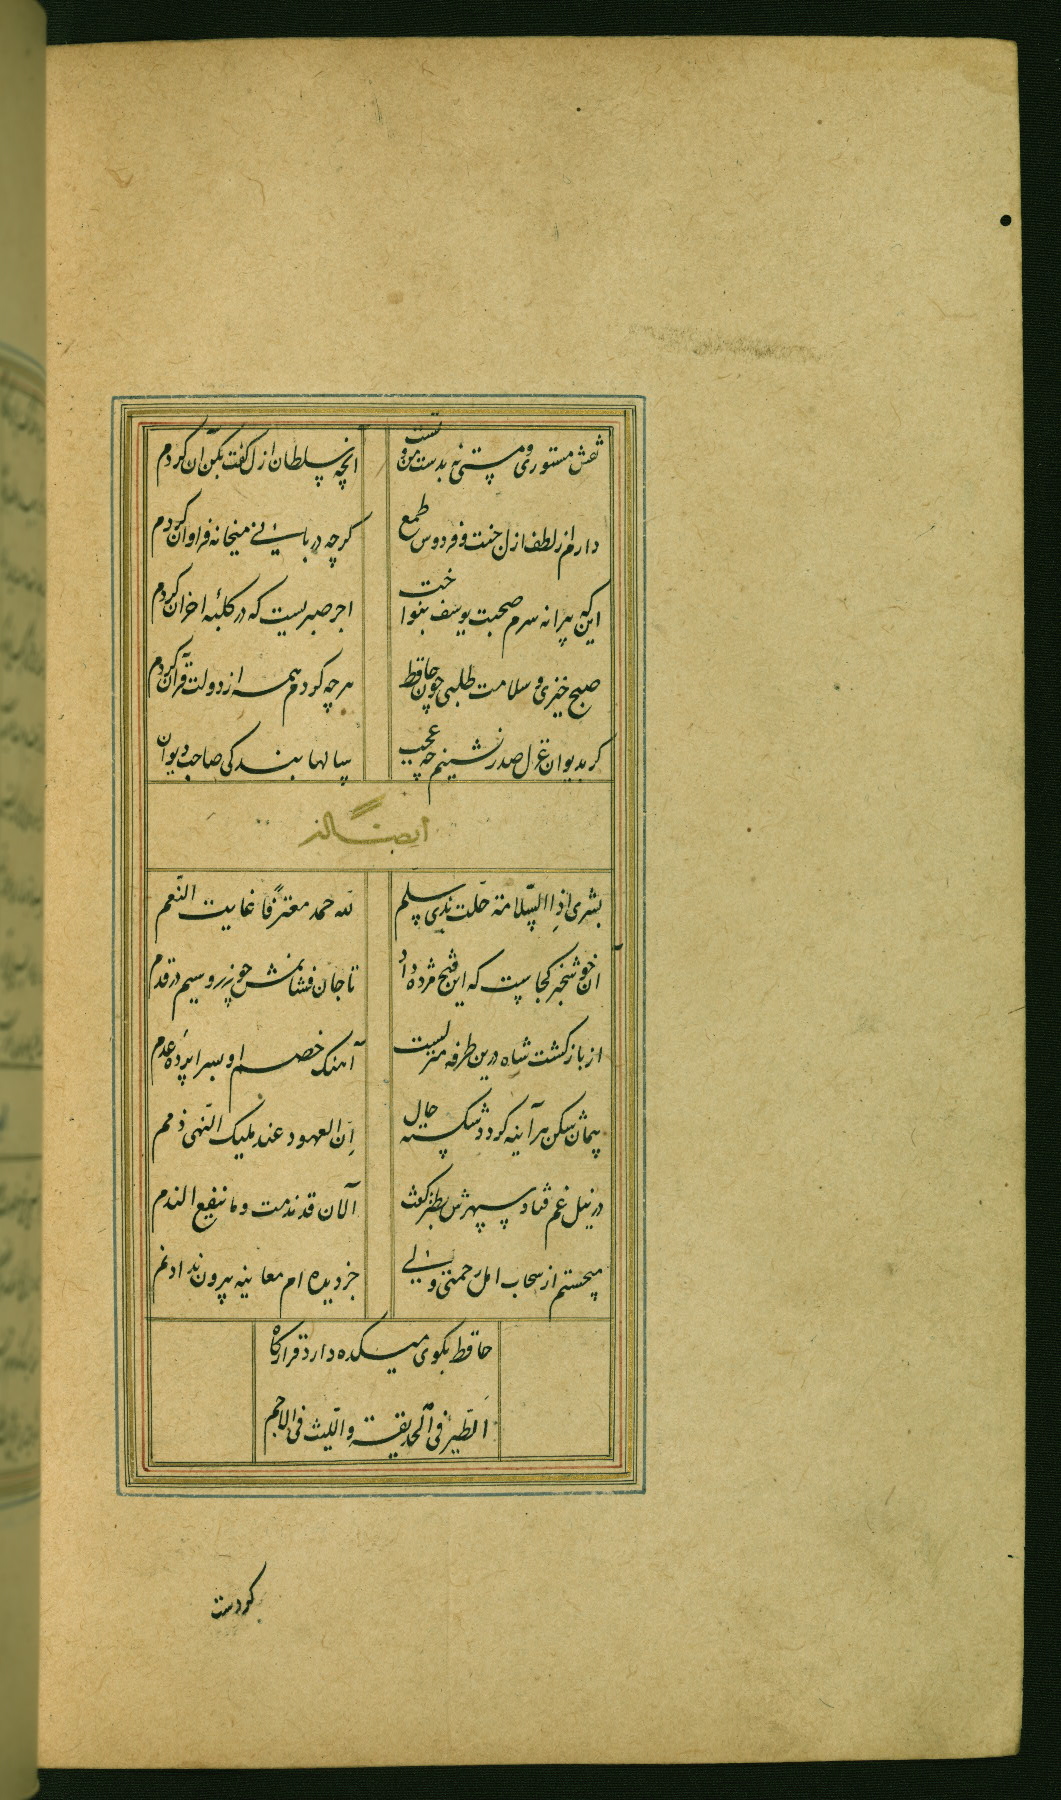 نقش مستوری و مستی نه بدست من و تست
انچه سلطان ازل گفت بکن ان کردم
دارم از لطف ازل جنت و فردوس طمع
کرچه دربانی میخانه فراوان کردم
این که پیرانه سرم صحبت یوسف بنواخت
اجر صبریست که در کلبهٔ احزان کردم
صبح خیزی و سلامت طلبی چون حافظ
هرچه کردم همه از دولت قرآن کردم
کر بدیوان غزل صدر نشینم چه عجب
سالها بندکی صاحب دیوان
ایضا له
بشری اذا السّلامة حلّت بذی سلم
لله حمد معترفًا غایت النّعم
آن خوشخبر کجاست که این فتح مژده داد
تا جان فشانمش چو زر و سیم در قدم
از بازکشت شاه درین طرفه منزلست
آهنک خصم او بسراپردهٔ عدم
پیمان شکن هرآینه کردد شکسته حال
اِنّ العهود عند ملیک النّهی ذمم
در نیل غم فتاد سپهرش بطنز کفت
آلان قد ندمت و ما ینفع الندم
میجستم از سحاب امل رحمتی ولی
جز دیده ام معاینه بیرون نداد نم
حافظ بکوی میکده دارد قرارکاه
اَلطّیر فی الحدیقة و اللّیث فی الاجم
کردست